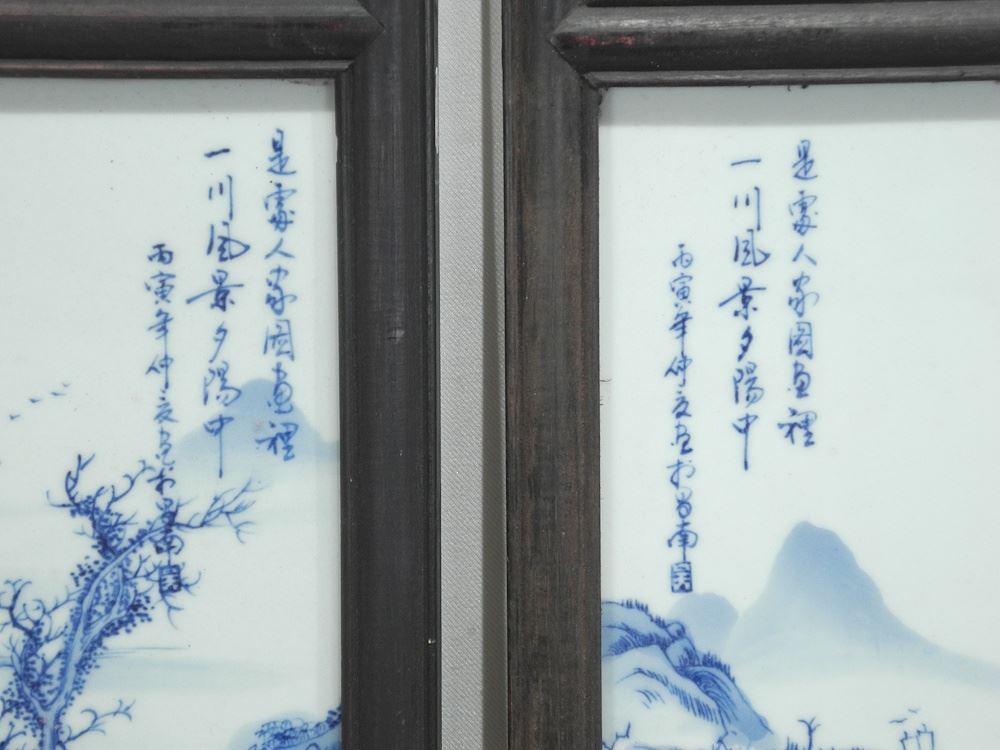 是處人家圖畫裡
一川風景夕陽中
丙寅年仲夏畫於昌南
是處人家圖畫裡
一川風景夕陽中
丙寅年仲夏畫於昌南